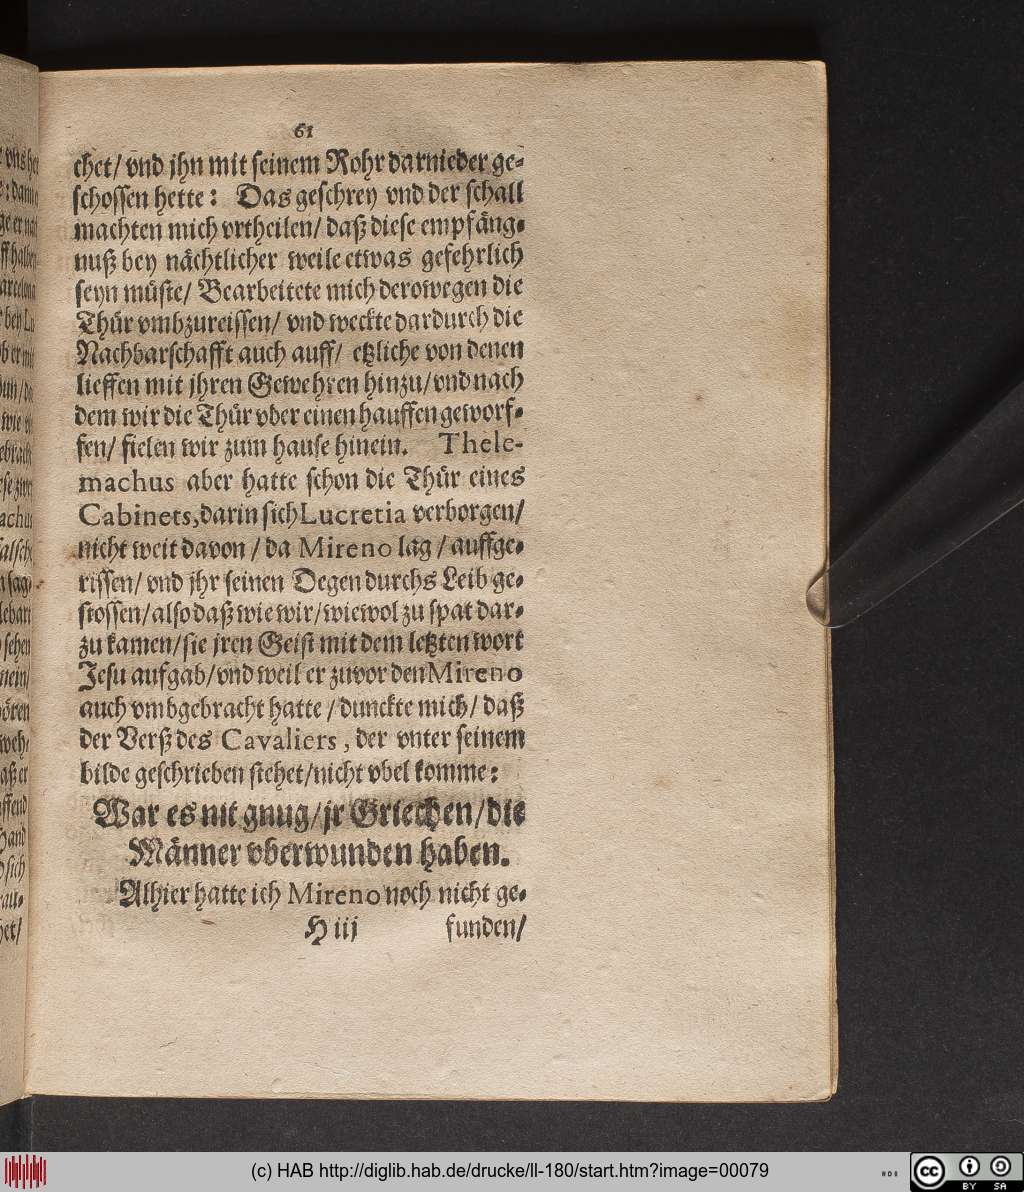 61
chet/ vnd jhn mit seinem Rohr darnieder ge-
schossen hette: Das geschrey vnd der schall
machten mich vrtheilen/ daß diese empfäng-
nuß bey nächtlicher weile etwas gefehrlich
seyn müste/ Bearbeitete mich derowegen die
Thür vmbzureissen/ vnd weckte dardurch die
Nachbarschafft auch auff/ etzliche von denen
lieffen mit jhren Gewehren hinzu/ vnd nach
dem wir die Thür vber einen hauffen geworf-
fen/ fielen wir zum hause hinein. Thele-
machus aber hatte schon die Thür eines
Cabinets, darin sich Lucretia verborgen/
nicht weit davon / da Mireno lag / auffge-
rissen/ vnd jhr seinen Degen durchs Leib ge-
stossen/ also daß wie wir/ wiewol zu spat dar-
zu kamen/ sie jren Geist mit dem letzten wort
Jesu aufgab/ vnd weil er zuvor den Mireno
auch vmbgebracht hatte / dunckte mich/ daß
der Verß des Cavaliers, der vnter seinem
bilde geschrieben stehet/ nicht vbel komme:
War es nit gnug/ jr Griechen/ die
Männer vberwunden haben.
Alhier hatte ich Mireno noch nicht ge-
H iij funden/
(c) HAB http://diglib.hab.de/drucke/ll-180/start.htm?image=00079
cc BY SA